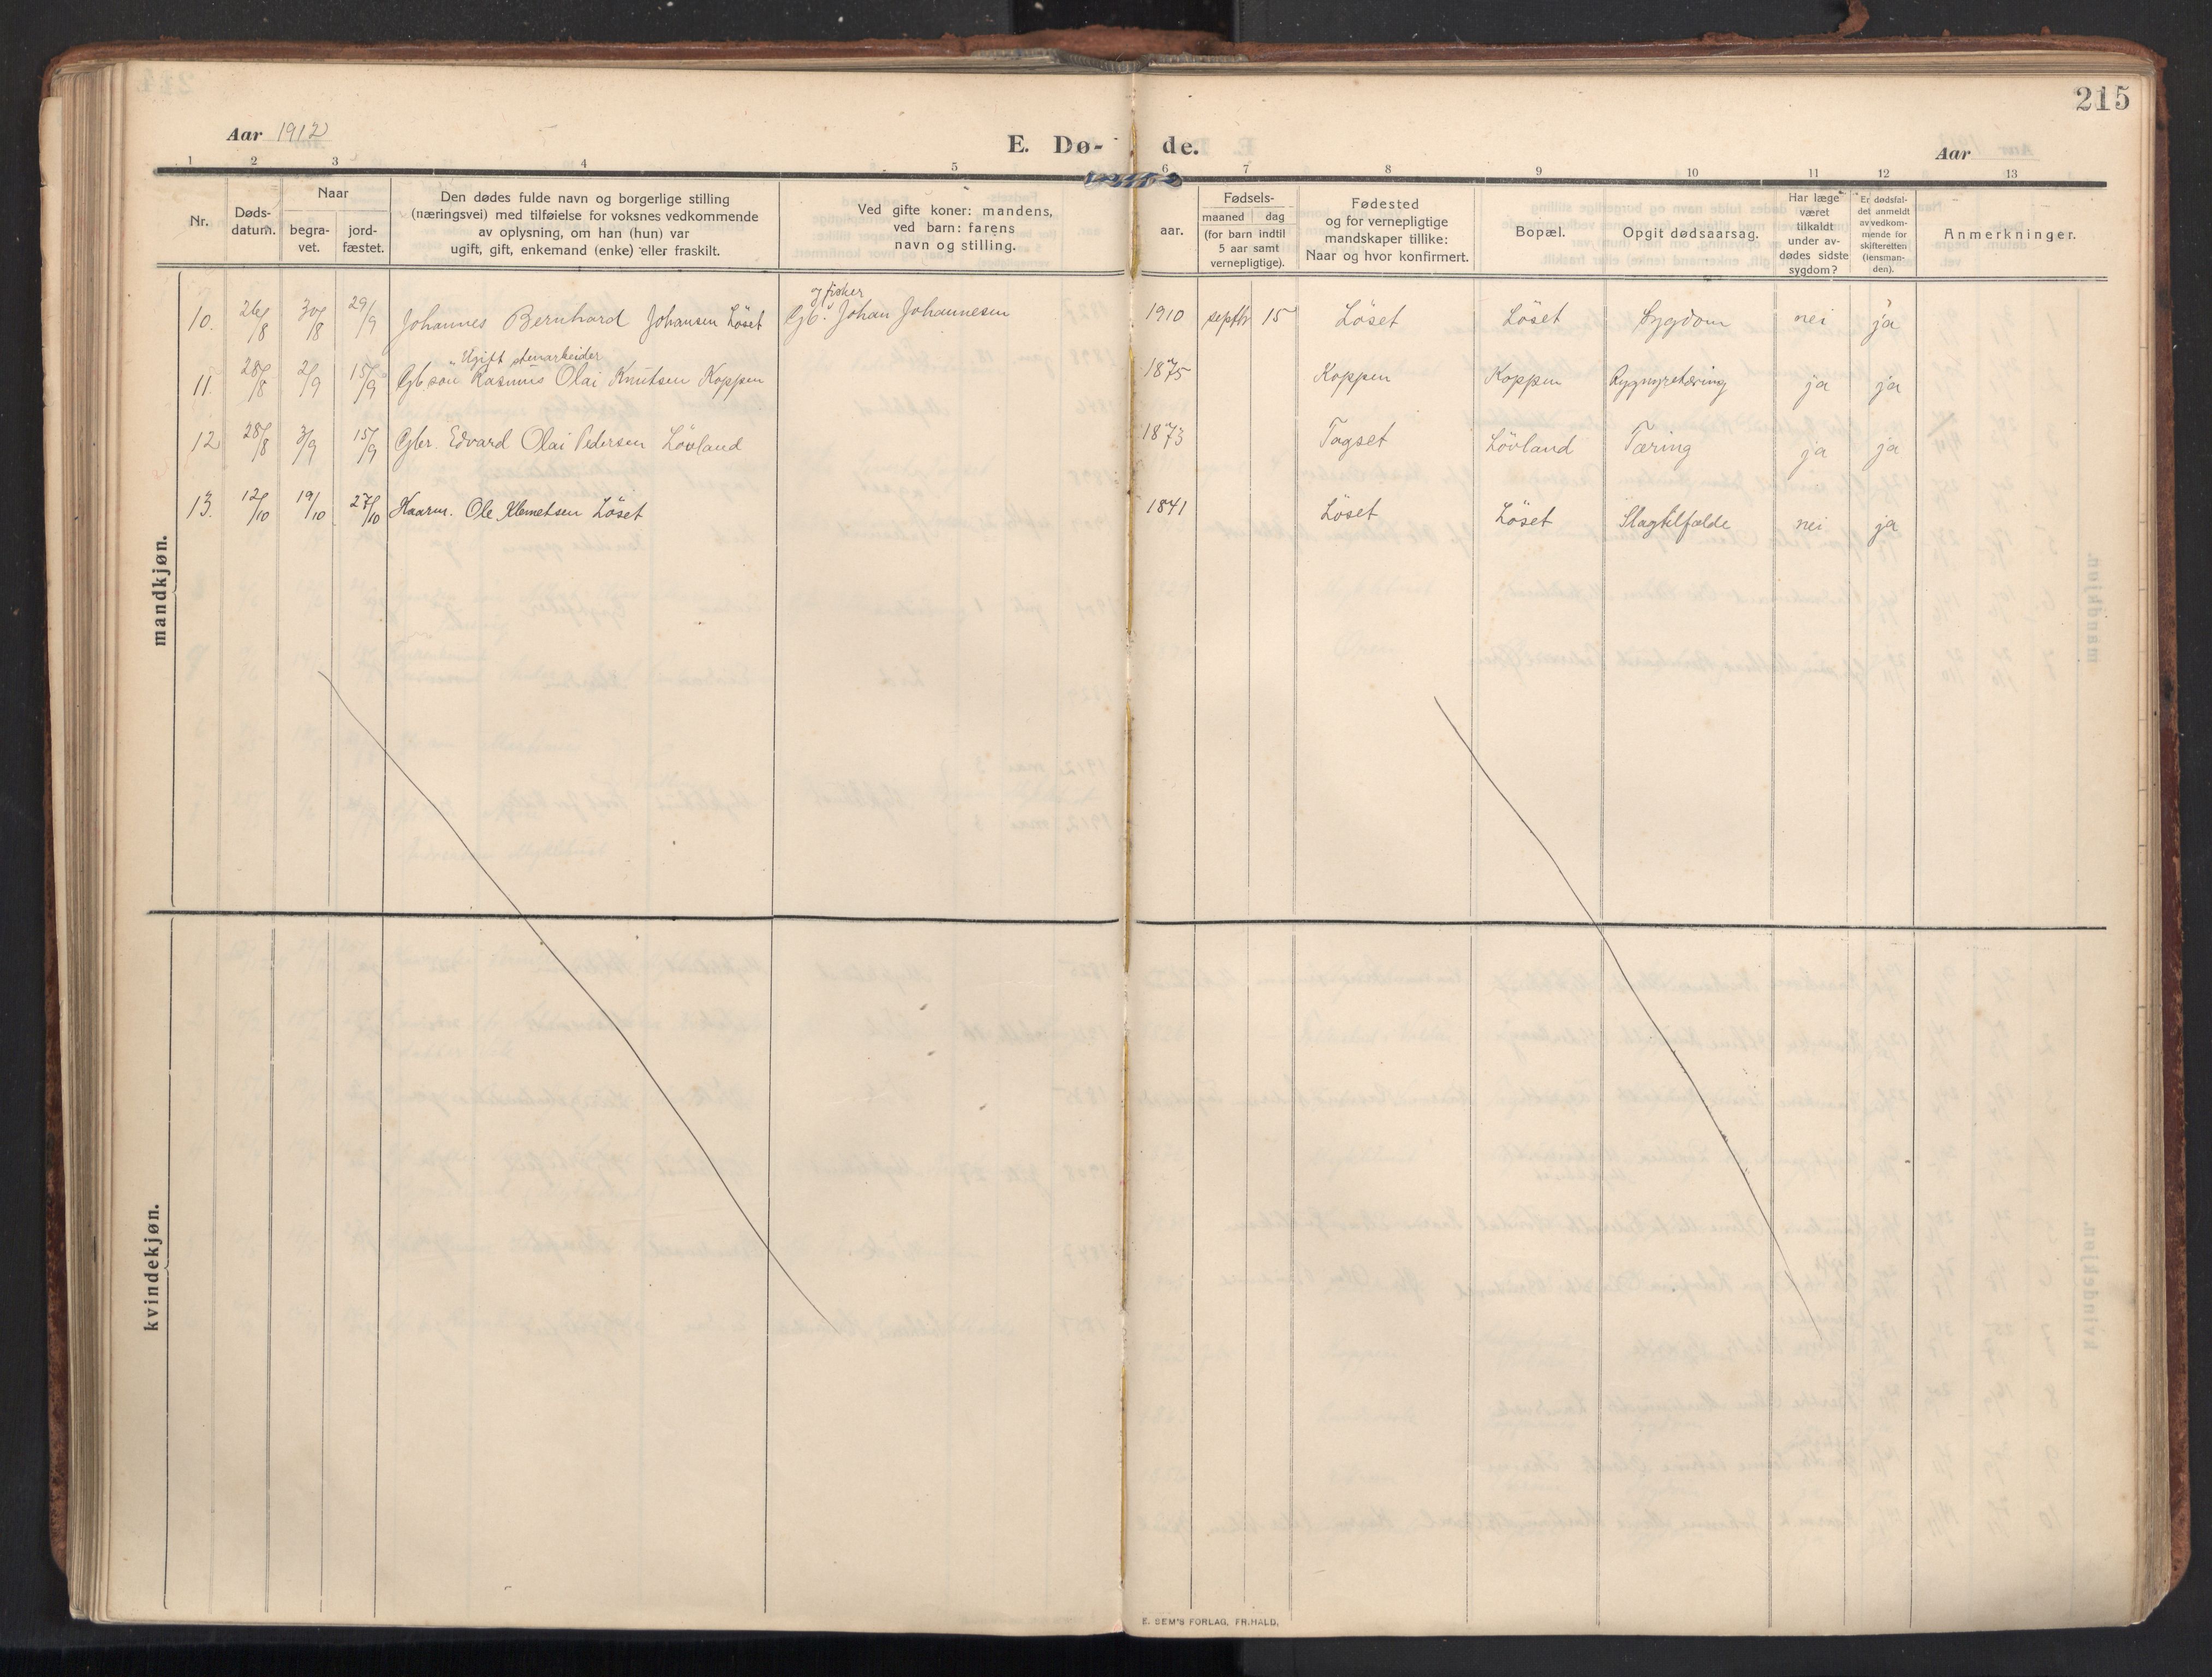 215
Aar 1912
E. Dø- de.
Aar
1 2 3 4 5 6 7 8 9 10 11 12 13
Nr.
Døds-
datum.
Naar
begra-
vet.
jord-
fæstet.
Den dødes fulde navn og borgerlige stilling
(næringsvei) med tilføielse for voksnes vedkommende
av oplysning, om han (hun) var
ugift, gift, enkemand (enke) eller fraskilt.
Ved gifte koner: mandens,
ved barn: farens
navn og stilling.
aar.
Fødsels-
maaned dag
(for barn indtil
5 aar samt
vernepligtige).
Fødested
og for vernepligtige
mandskaper tillike:
Naar og hvor konfirmert.
Bopæl.
Opgit dødsaarsag.
Har læge
været
tilkaldt
under av-
dødes sidste
sygdom?
Er dødsfal-
det anmeldt
av vedkom-
mende for
skifteretten
(lensman-
den).
Anmerkninger.
mandkjøn.
og fisker
10. 26/8 30/8 29/9 Johannes Bernhard Johansen Löset Gb. Johan Johannesen 1910 septbr 15 Löset Löset Sygdom nei ja
Ugift stenarbeider
11. 28/8 2/9 15/9 Gb sön Rasmus Olai Knutsen Koppen 1875 Koppen Koppen Rygmgretæring ja ja
12 28/8 3/9 15/9 Gbr. Edvard Olai Pedersen Lövland 1873 Tagset Lövland Tæring ja ja
13. 12/10 19/10 27/10 Kaarm. Ole Klemetsen Löset 1841 Löset Löset Slagtilfælde nei ja
kvindekjøn.
E. SEM'S FORLAG, FR.HALD.